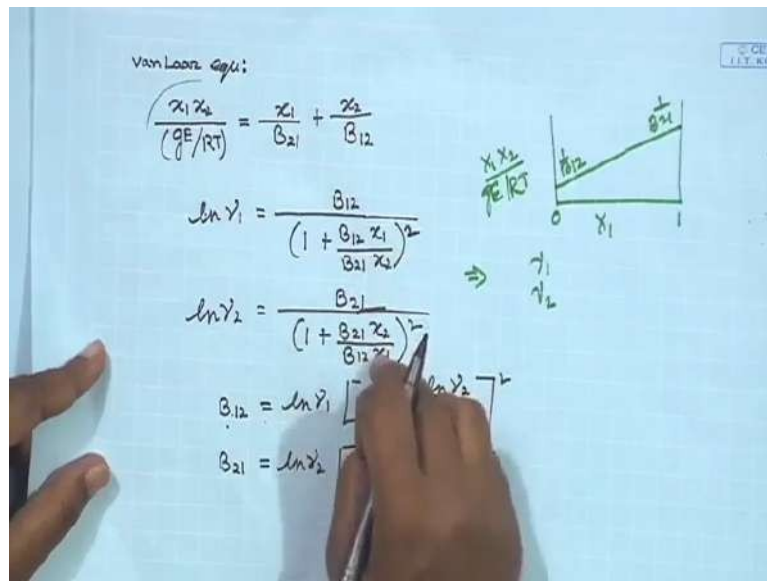 VanLaar equ:
x₁x₂/(gE/RT) = x₁/B₂₁ + x₂/B₁₂
ln γ₁ = B₁₂/(1 + B₁₂ x₁/B₂₁ x₂)²
ln γ₂ = B₂₁/(1 + B₂₁ x₂/B₁₂ x₁)²
B₁₂ = ln γ₁ [ ln γ₂ ]²
B₂₁ = ln γ₂ [
x₁x₂/gE/RT
1/B₁₂
1/B₂₁
0 x₁ 1
⇒ γ₁
γ₂
© CE
I.I.T. K